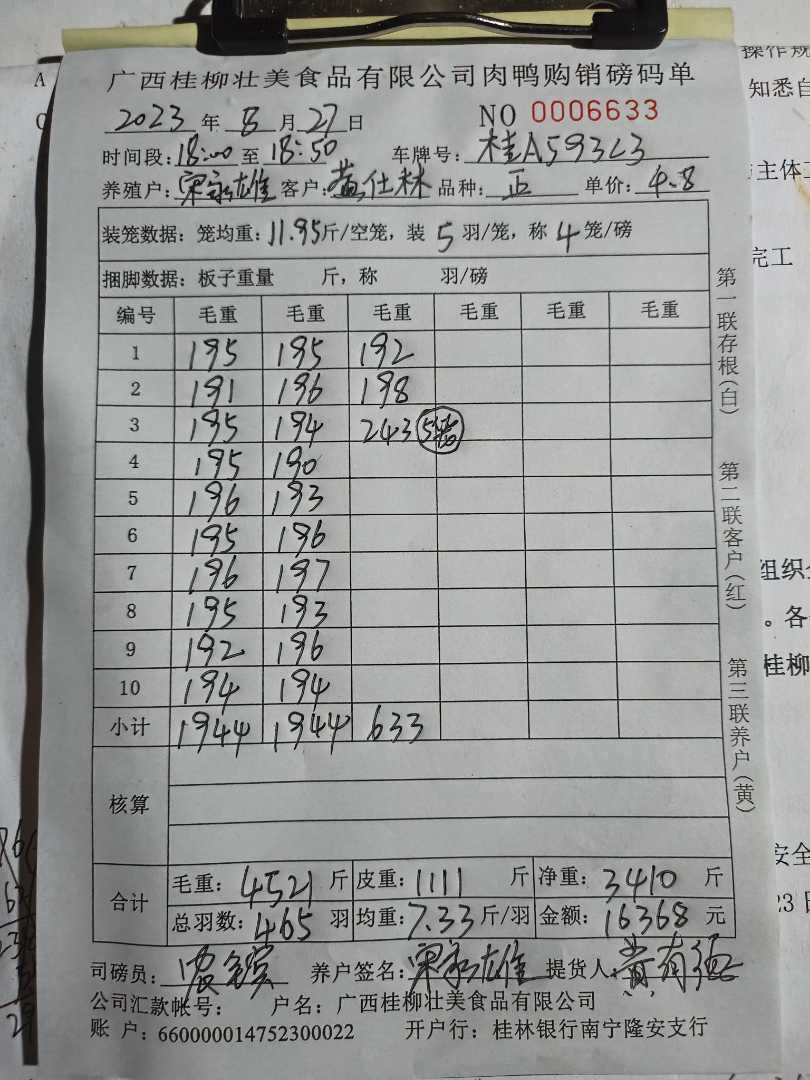 广西桂柳壮美食品有限公司肉鸭购销磅码单
2023 年 8 月 27 日 NO 0006633
时间段: 18:00 至 18:50 车牌号: 桂A593L3
养殖户: 宋永雄 客户: 黄仕林 品种: 正 单价: 4.8
装笼数据: 笼均重: 11.95 斤/空笼, 装 5 羽/笼, 称 4 笼/磅
捆脚数据: 板子重量 斤, 称 羽/磅
编号 毛重 毛重 毛重 毛重 毛重 毛重
1 195 195 192
2 191 196 198
3 195 194 243 5笼
4 195 190
5 196 193
6 195 196
7 196 197
8 195 193
9 192 196
10 194 194
小计 1944 1944 633
核算
合计 毛重: 4521 斤 皮重: 1111 斤 净重: 3410 斤
总羽数: 465 羽 均重: 7.33 斤/羽 金额: 16368 元
司磅员: 养户签名: 宋永雄 提货人: 黄有
公司汇款帐号: 户名: 广西桂柳壮美食品有限公司
账 户: 660000014752300022 开户行: 桂林银行南宁隆安支行
第一联存根(白)
第二联客户(红)
第三联养户(黄)
操作规
知悉自
主体工
完工
组织
。各
桂柳
安全
23 日
A